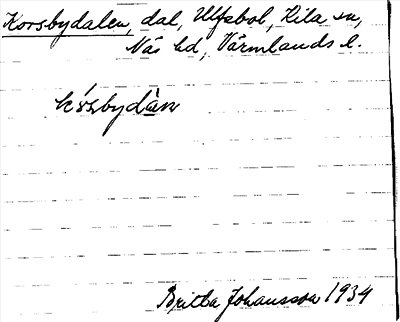 Korsbydalen, dal, Ulfsbol, Kila sn,
Näs hd, Värmlands l.
kórsbydàn
Britta Johansson 1934